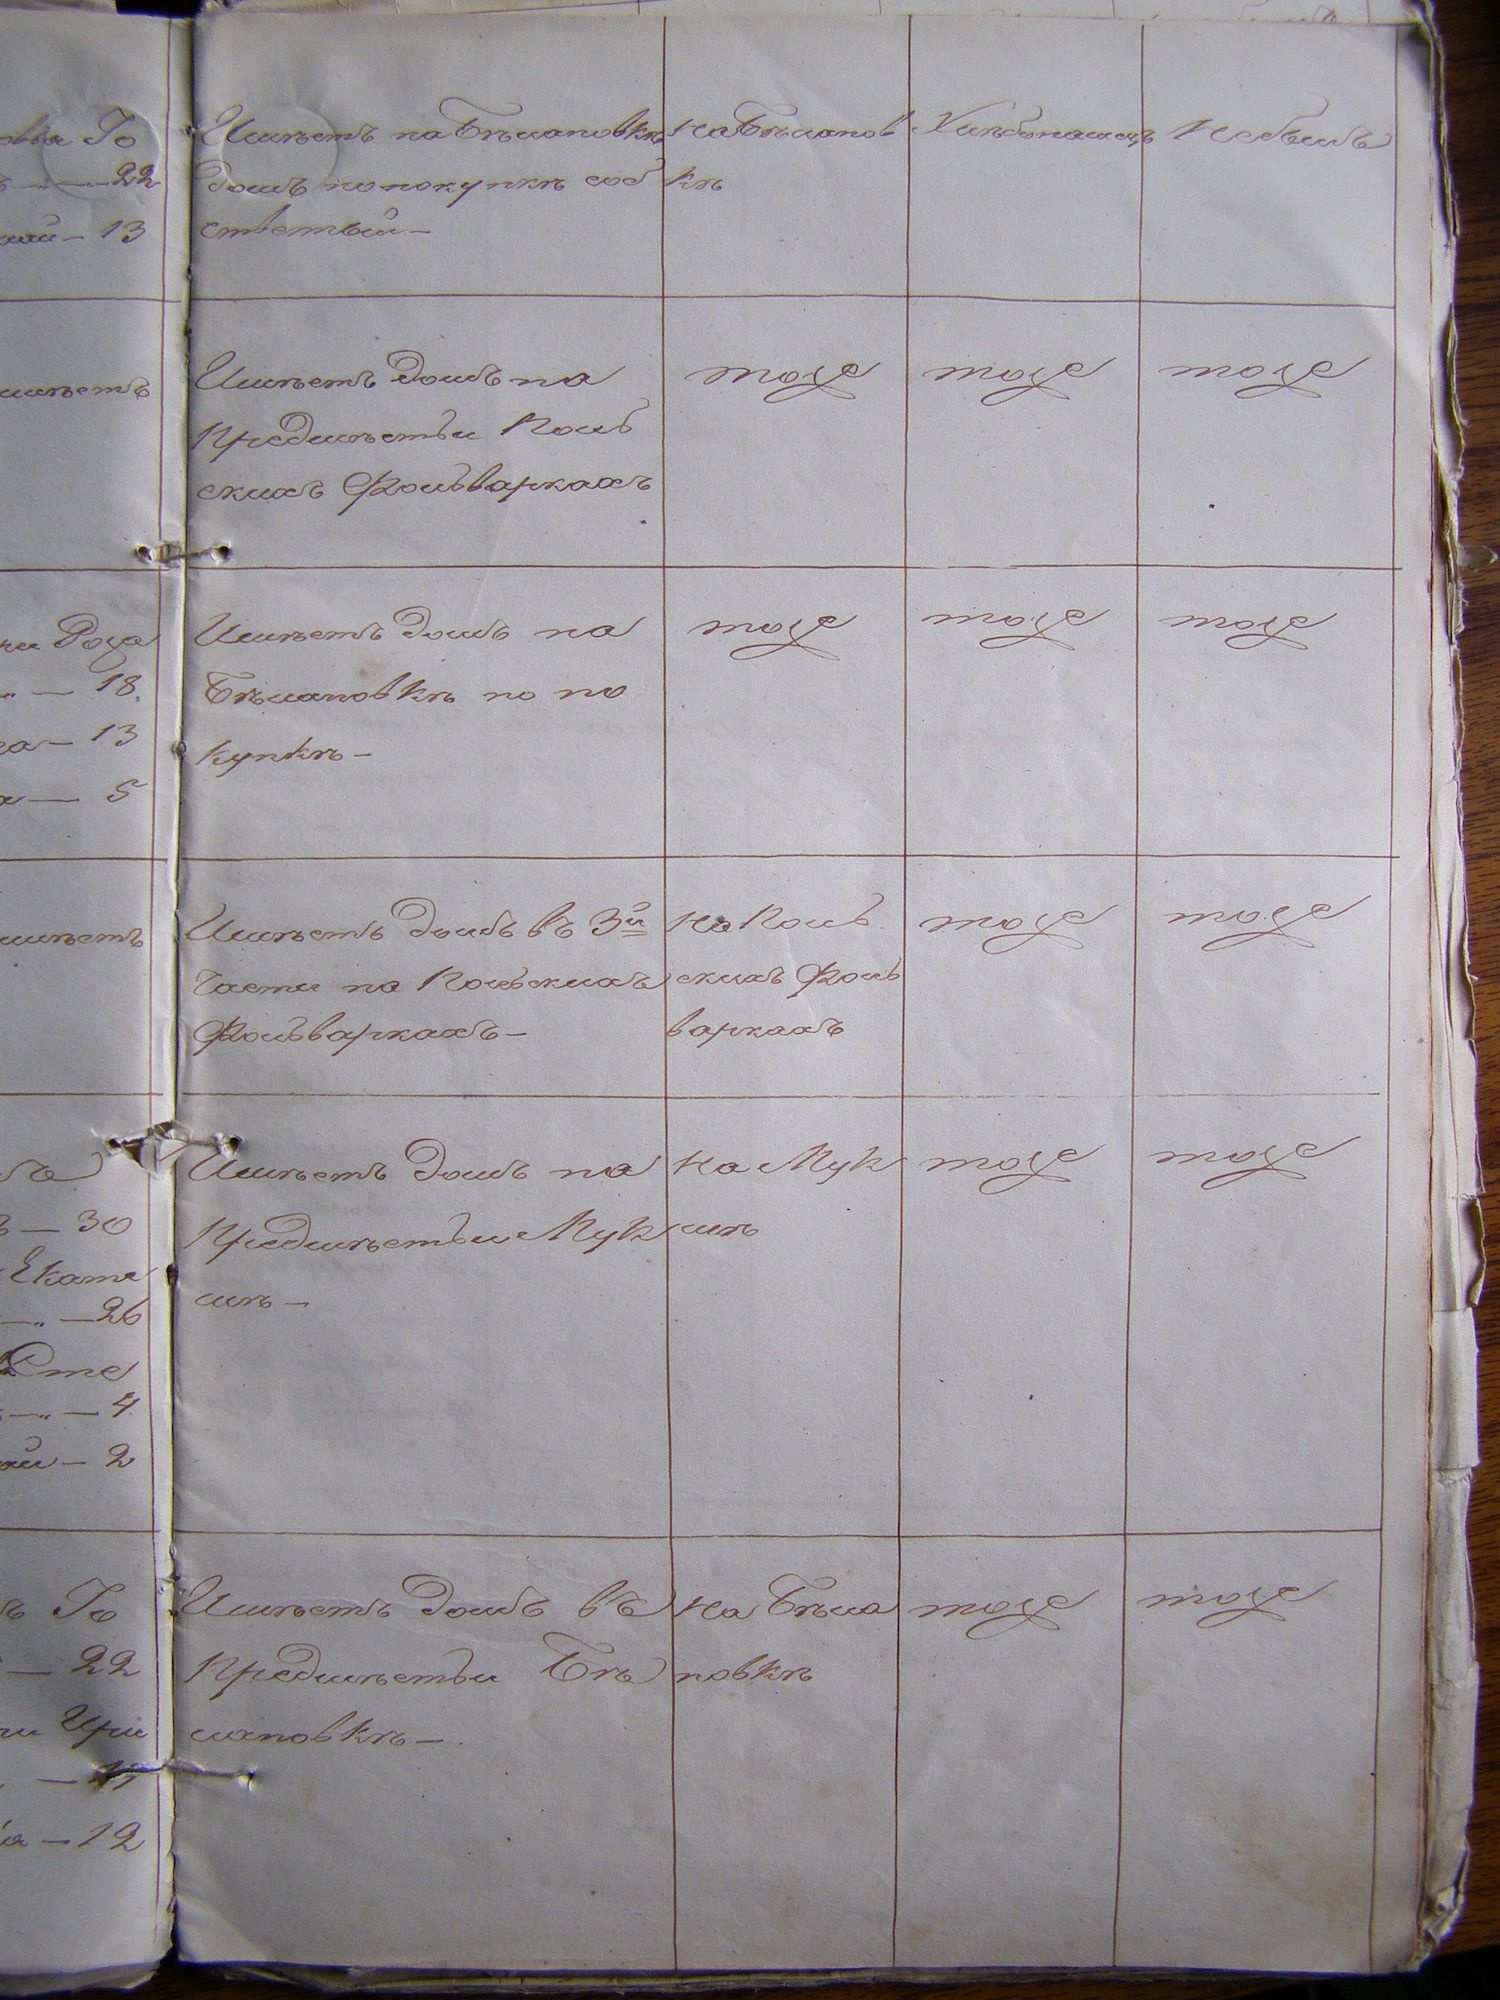 овья Го
22
13
Имѣетъ на Бѣлановкѣ
домъ по покупкѣ соб
ственный —
на Бѣланов
кѣ
Хлѣбопашецъ
Небылъ
имѣетъ
Имѣетъ домъ на
Предмѣстьи Поль
скихъ Фольваркахъ
тоже
тоже
тоже
Роза
— 18.
— 13
— 5
Имѣетъ домъ на
Бѣлановкѣ по по
купкѣ —
тоже
тоже
тоже
имѣетъ
Имѣетъ домъ въ 3й
части на Польскихъ
Фольваркахъ —
на Поль
скихъ Фоль
варкахъ
тоже
тоже
— 30
Екате
— 26
Сте
— 4
— 2
Имѣетъ домъ на
Предмѣстьи Мук
шѣ —
на Мук
шѣ
тоже
тоже
Го
— 22
Ири
— 17
— 12
Имѣетъ домъ въ
Предмѣстьи Бѣ
лановкѣ —
на Бѣла
новкѣ
тоже
тоже